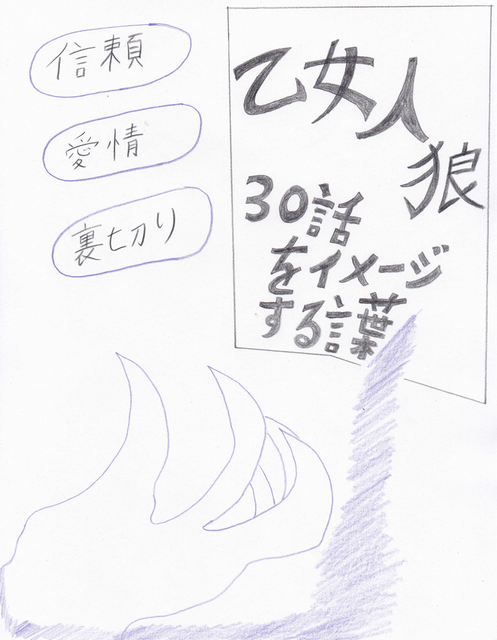 信頼
愛情
裏切り
乙女人
狼
30話
をイメージ
する言葉